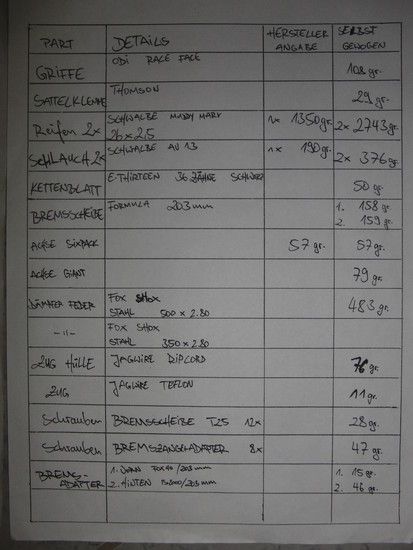 PART DETAILS HERSTELLER ANGABE SELBST GEWOGEN
GRIFFE ODI RACE FACE 108 gr.
SATTELKLEMME THOMSON 29 gr.
Reifen 2x SCHWALBE MUDDY MARY 26 x 2,5 1x 1350 gr. 2x 2743 gr.
SCHLAUCH 2x SCHWALBE AV 13 1x 190 gr. 2x 376 gr.
KETTENBLATT E-THIRTEEN 36 ZÄHNE SCHWARZ 50 gr.
BREMSSCHEIBE FORMULA 203 mm 1. 158 gr.
2. 159 gr.
ACHSE SIXPACK 57 gr. 57 gr.
ACHSE GIANT 79 gr.
DÄMPFER FEDER FOX SHOX 483 gr.
STAHL 500 x 2.80
-"- FOX SHOX
STAHL 350 x 2.80
ZUG HÜLLE JAGWIRE RIPCORD 76 gr.
ZUG JAGWIRE TEFLON 11 gr.
Schrauben BREMSSCHEIBE T25 12x 28 gr.
Schrauben BREMSZANGENADAPTER 8x 47 gr.
BREMS- ADAPTER 1. VORN FOX40/203 mm 1. 15 gr.
2. HINTEN /203 mm 2. 46 gr.